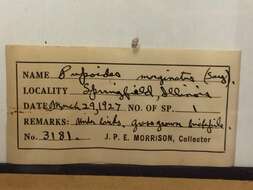 NAME Pupoides marginatus (Say)
LOCALITY Springfield, Illinois
DATE March 29, 1927 NO. OF SP. 1
REMARKS: Under bricks, grass grown brickpile
No. 3181. J. P. E. MORRISON, Collector